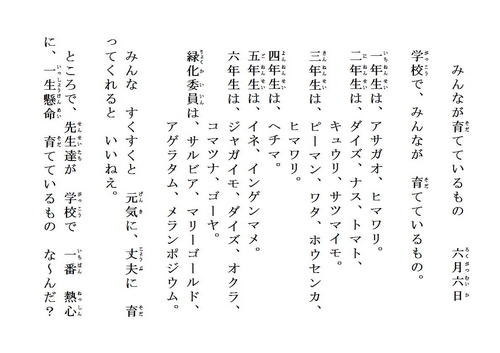 みんなが育てているもの　六月六日
学校で、みんなが　育てているもの。
一年生は、アサガオ、ヒマワリ。
二年生は、ダイズ、ナス、トマト、
キュウリ、サツマイモ。
三年生は、ピーマン、ワタ、ホウセンカ、
ヒマワリ。
四年生は、ヘチマ。
五年生は、イネ、インゲンマメ。
六年生は、ジャガイモ、ダイズ、オクラ、
コマツナ、ゴーヤ。
緑化委員は、サルビア、マリーゴールド、
アゲラタム、メランポジウム。
みんな　すくすくと　元気に、丈夫に　育
ってくれると　いいねえ。
ところで、先生達が　学校で　一番　熱心
に、一生懸命　育てているもの　な〜んだ？